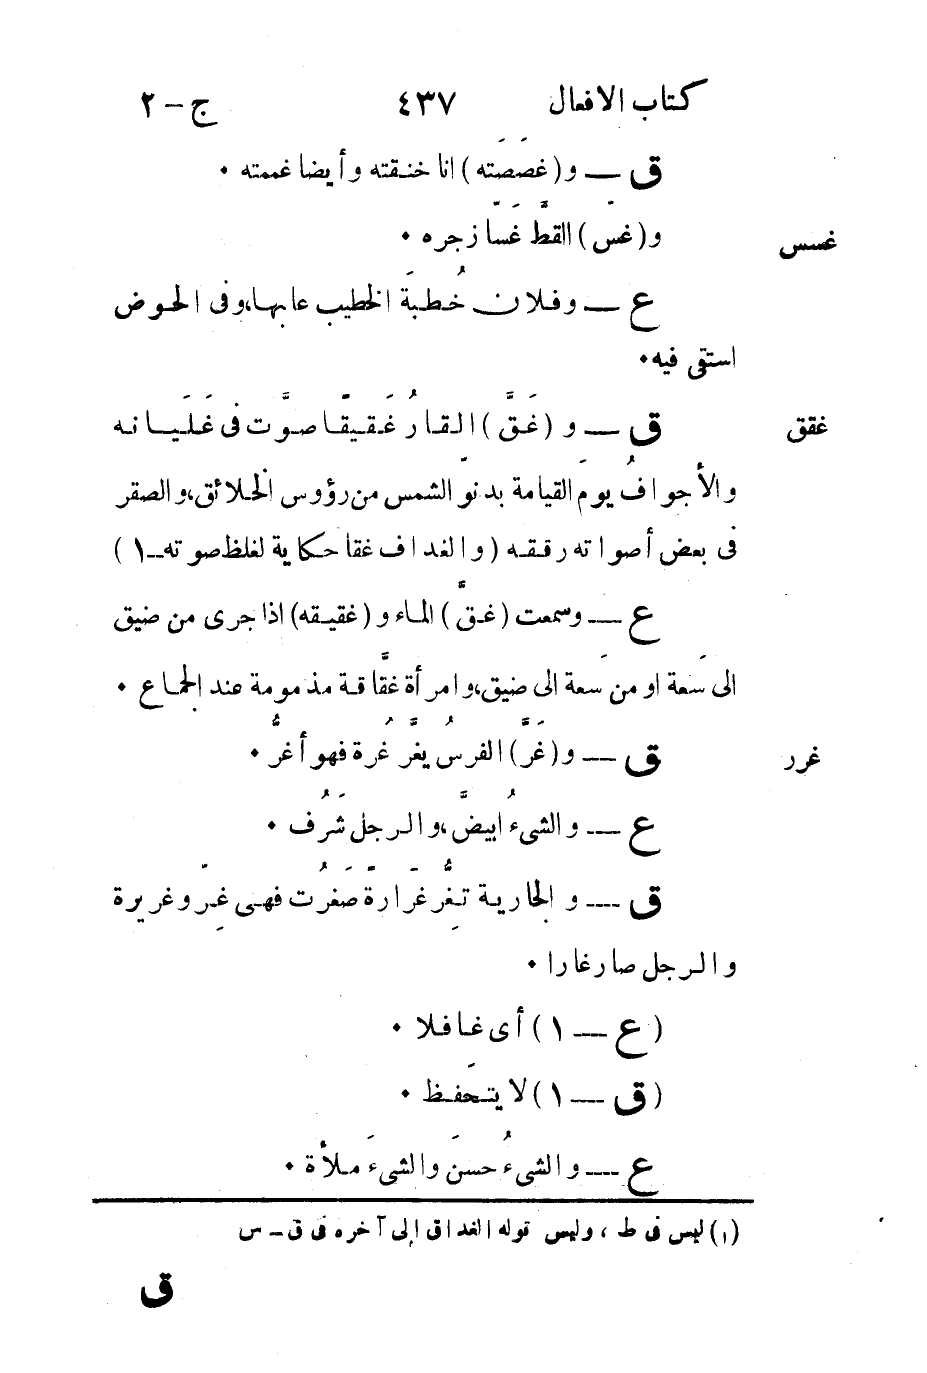 كتاب الافعال ٤٣٧ ج – ٢
ق — و (غصَصَته) انا خنقته وأيضا غممته ٠
غسس و (غسّ) القطَّ غَسّا زجره ٠
ع — وفلان خُطبَة الخطيب عابها، وفى الحوض
استقى فيه ٠
غقق ق — و (غَقَّ) القارُ غَقيقًا صوَّت فى غَلَيانه
والأجوافُ يومَ القيامة بدنوّ الشمس من رؤوس الخلائق، والصقر
فى بعض أصواته رققه (والغداف غقا حكاية لغلظ صوته–١)
ع — وسمعت (غقَّ) الماء و (غقيقه) اذا جرى من ضيق
الى سَعة او من سَعة الى ضيق، وامرأة غقَّاقة مذمومة عند الجماع ٠
غرر ق — و (غَرَّ) الفرسُ يغَرُّ غُرة فهو أغرُّ ٠
ع — والشىءُ ابيضَّ، والرجل شَرُف ٠
ق — والجارية تغِرُّ غَرارَةً صَغُرت فهى غِرّ وغريرة
والرجل صار غارا ٠
(ع — ١) أى غافلا ٠
(ق — ١) لا يتحَفظ ٠
ع — والشىءُ حسَن والشىءَ ملأَة ٠
(١) ليس فى ط ، وليس قوله الغداق إلى آخره فى ق – س
ق